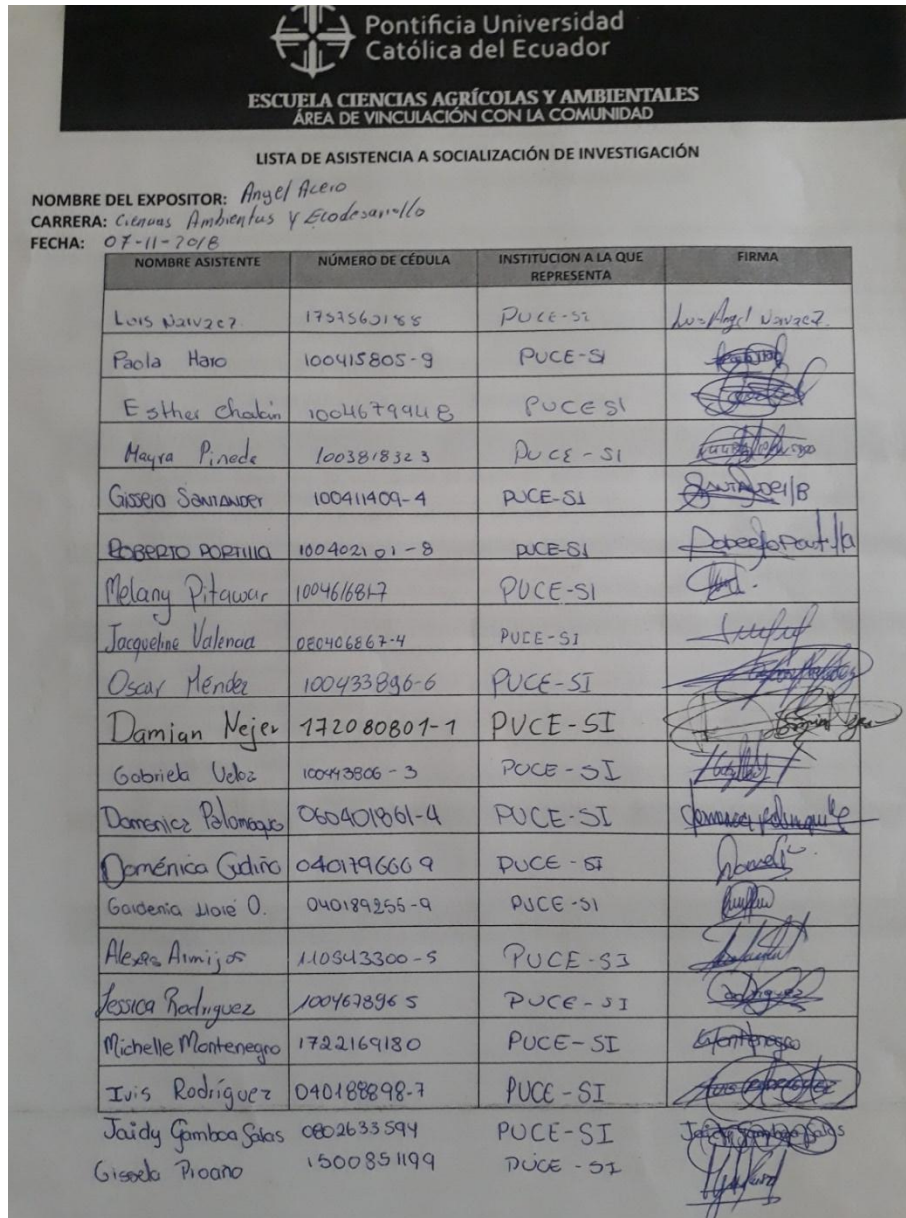 Pontificia Universidad
Católica del Ecuador
ESCUELA CIENCIAS AGRÍCOLAS Y AMBIENTALES
ÁREA DE VINCULACIÓN CON LA COMUNIDAD
LISTA DE ASISTENCIA A SOCIALIZACIÓN DE INVESTIGACIÓN
NOMBRE DEL EXPOSITOR: Angel Acero
CARRERA: Ciencias Ambientas y Ecodesarrollo
FECHA: 07-11-2018
NOMBRE ASISTENTE NÚMERO DE CÉDULA INSTITUCION A LA QUE REPRESENTA FIRMA
Luis Narvaez PUCE-SI Luis Angel Narvaez
Paola Haro 100415805-9 PUCE-SI
Esther Chalán 1004679948 PUCE SI
Mayra Pineda 1003818323 PUCE-SI
Santander 100411409-4 PUCE-SI
ROBERTO PORTILLA 100402101-8 PUCE-SI Roberto Portilla
Melany Pitawar PUCE-SI
Jacqueline Valencia 080406867-4 PUCE-SI
Oscar Méndez 100433896-6 PUCE-SI
Damian Nejer 172080801-1 PUCE-SI
Gabriela Veloz 100443806-3 PUCE-SI
Domenica Palomeque 060401861-4 PUCE-SI
Doménica Gudiño 0401796669 PUCE-SI
Gardenia O. 040189255-9 PUCE-SI
Alexis Armijos 110543300-5 PUCE-SI
Jessica Rodriguez 100467896 5 PUCE-SI Rodriguez
Michelle Montenegro 1722169180 PUCE-SI Montenegro
Ivis Rodríguez 040188898-7 PUCE-SI
Jaidy Gamboa Salas 0802633594 PUCE-SI Jaidy Gamboa Salas
Gissela 1500851199 PUCE-SI